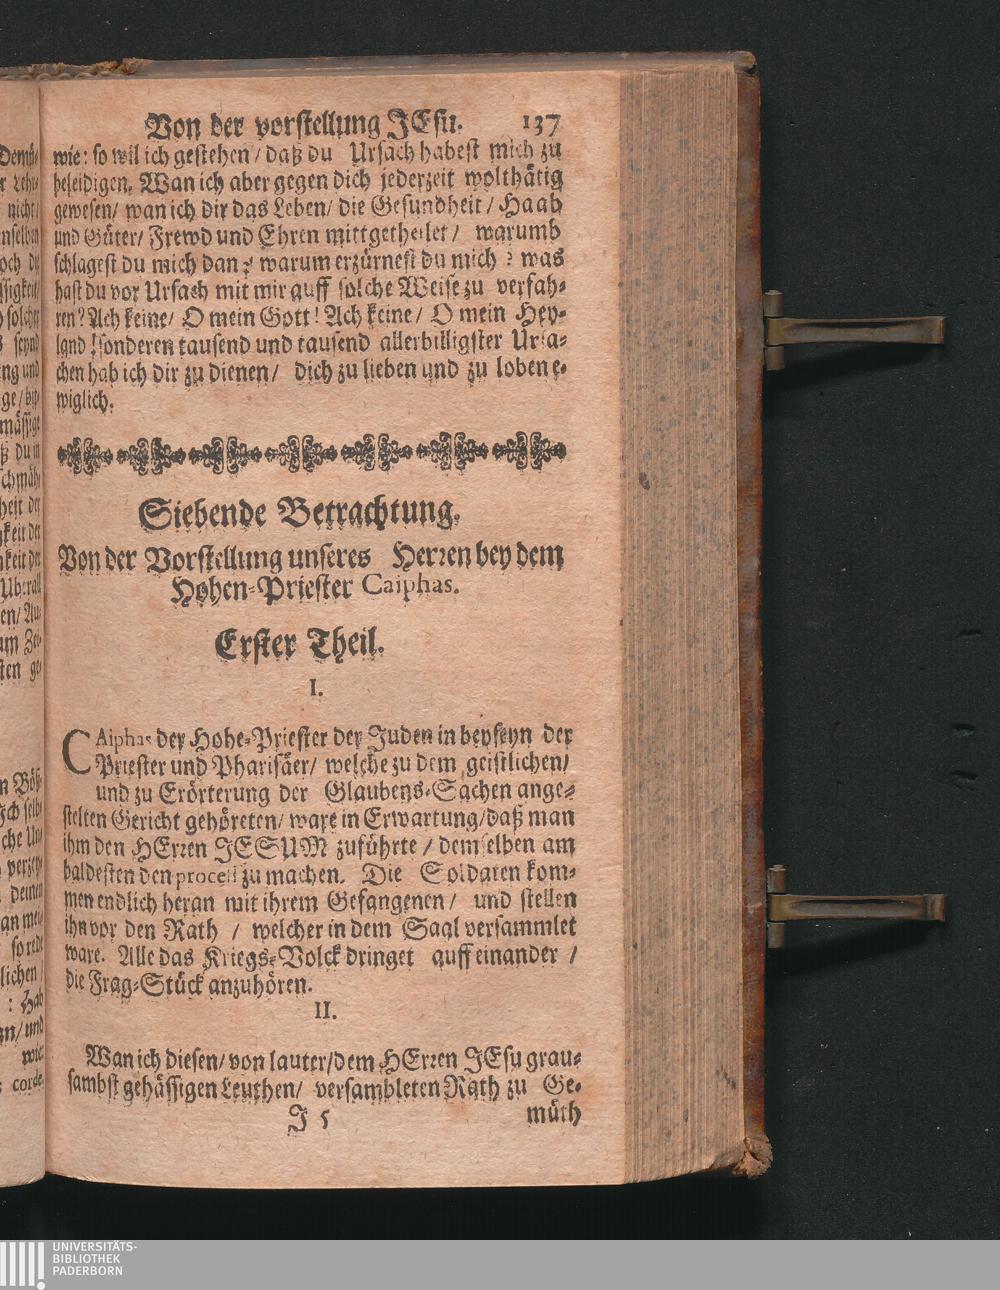 Von der vorstellung JEsu. 137
wie: so wil ich gestehen / daß du Ursach habest mich zu
beleidigen. Wan ich aber gegen dich jederzeit wolthätig
gewesen / wan ich dir das Leben / die Gesundheit / Haab
und Gäter / Frewd und Ehren mittgetheilet / warumb
schlagest du mich dan? warum erzürnest du mich? was
hast du vor Ursach mit mir auff solche Weise zu verfah-
ren? Ach keine / O mein Gott! Ach keine / O mein Hey-
land! sonderen tausend und tausend allerbilligster Ursa-
chen hab ich dir zu dienen / dich zu lieben und zu loben e-
wiglich.
Siebende Betrachtung.
Von der Vorstellung unseres Herren bey dem
Hohen-Priester Caiphas.
Erster Theil.
I.
CAiphas der Hohe-Priester der Juden in beyseyn der
Priester und Pharisäer / welche zu dem geistlichen /
und zu Erörterung der Glaubens-Sachen ange-
stelten Gericht gehöreten / ware in Erwartung / daß man
ihm den HErren JESUM zuführte / demselben am
baldesten den process zu machen. Die Soldaten kom-
men endlich heran mit ihrem Gefangenen / und stellen
ihn vor den Rath / welcher in dem Saal versammlet
ware. Alle das Kriegs-Volck dringet auff einander /
die Frag-Stück anzuhören.
II.
Wan ich diesen / von lauter / dem HErren JEsu grau-
sambst gehässigen Leuthen / versambleten Rath zu Ge-
J 5 müth
UNIVERSITÄTS-
BIBLIOTHEK
PADERBORN